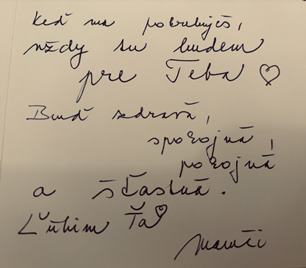 Keď ma potrebuješ,
vždy tu budem
pre Teba ♡
Buď zdravá,
spokojná,
pokojná
a šťastná.
Ľúbim Ťa♡